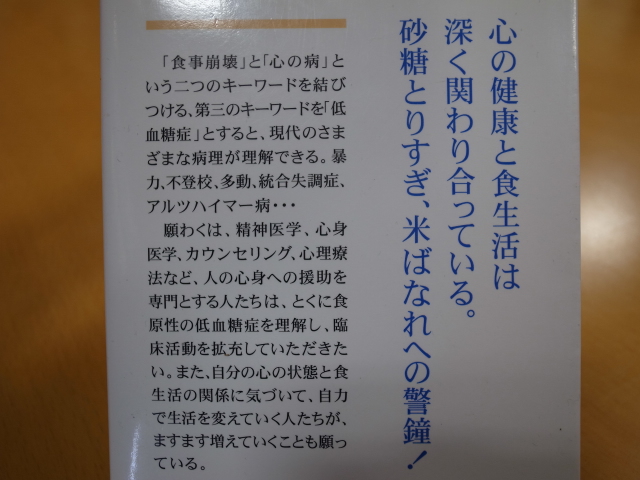 心の健康と食生活は
深く関わり合っている。
砂糖とりすぎ、米ばなれへの警鐘!
「食事崩壊」と「心の病」と
いう二つのキーワードを結び
つける、第三のキーワードを「低
血糖症」とすると、現代のさま
ざまな病理が理解できる。暴
力、不登校、多動、統合失調症、
アルツハイマー病・・・
願わくは、精神医学、心身
医学、カウンセリング、心理療
法など、人の心身への援助を
専門とする人たちは、とくに食
原性の低血糖症を理解し、臨
床活動を拡充していただきた
い。また、自分の心の状態と食
生活の関係に気づいて、自力
で生活を変えていく人たちが、
ますます増えていくことも願っ
ている。